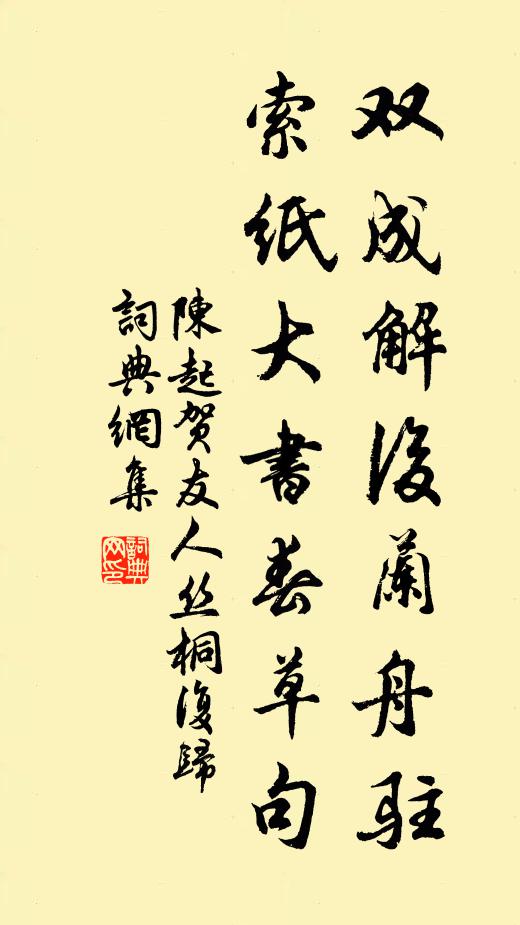 双成解后蘭舟駐
索纸大書春草句
陳起贺友人丝桐復歸
詞典網集
詞典
网印